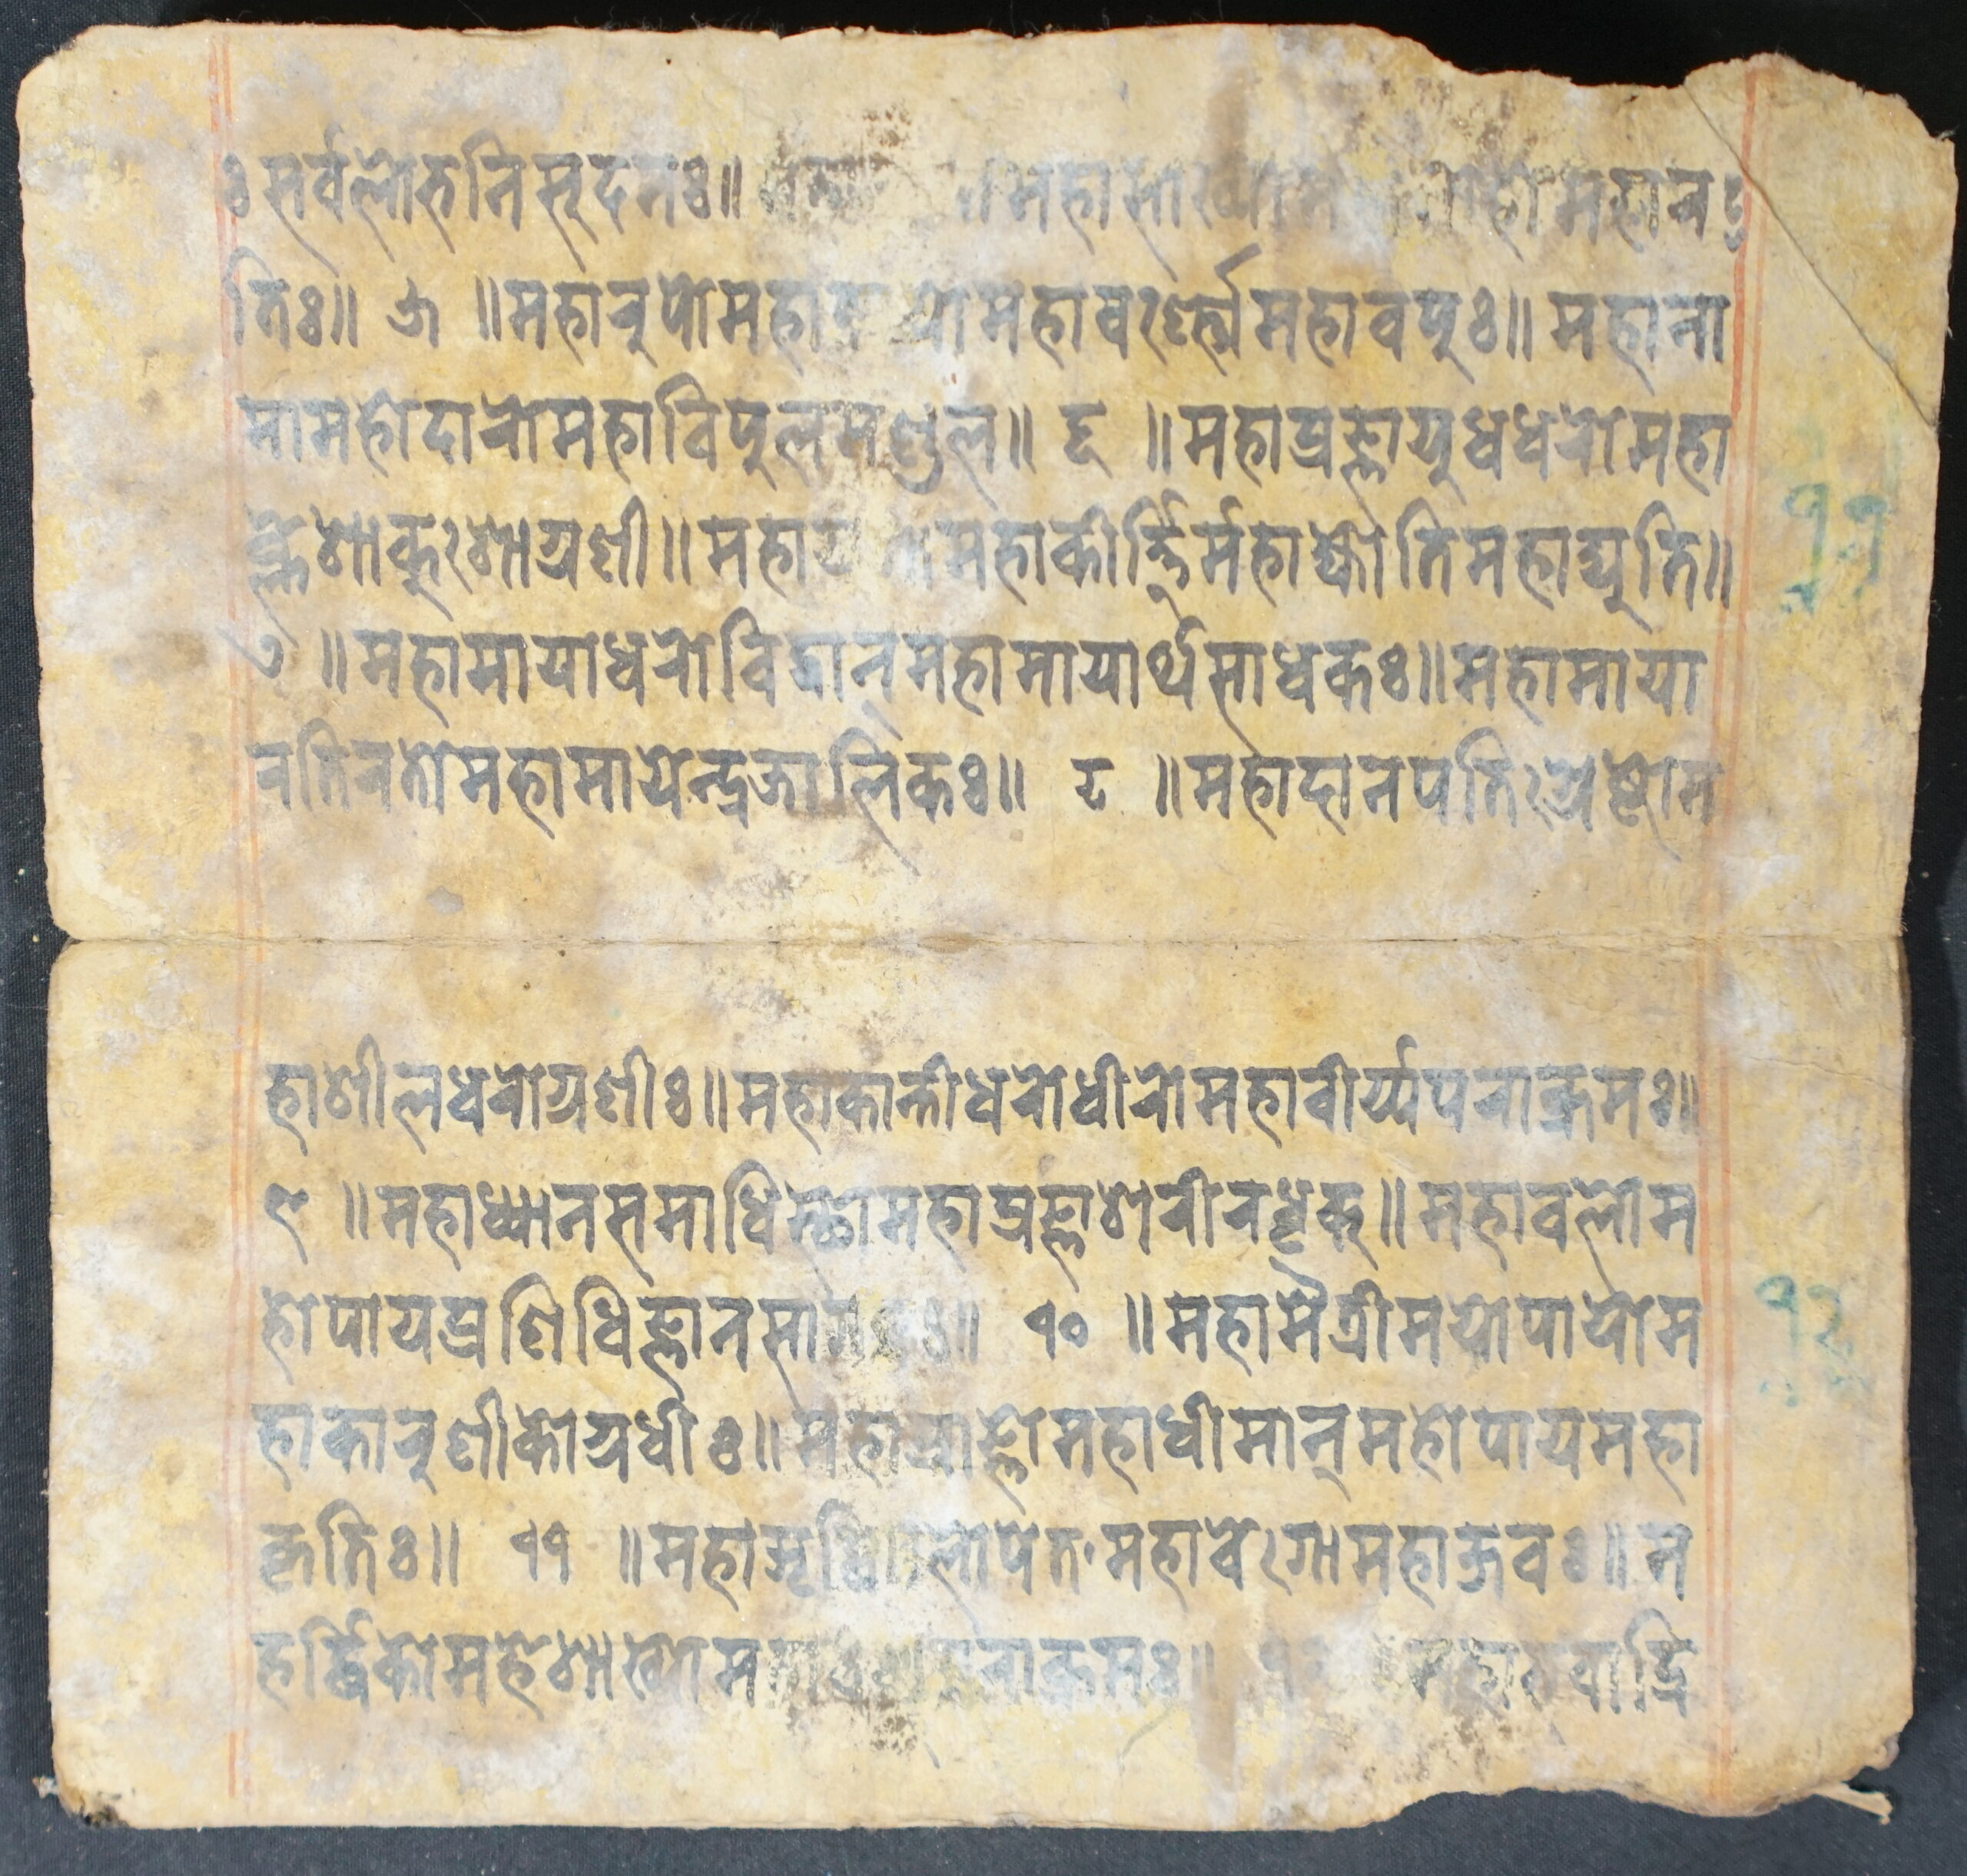 ः सर्वलोरुनिसूदनः॥ महासौख्यो महारपु
तिः॥ ५ ॥महारुपोमहाकायोमहावर्ण्णोमहावपुः॥महाना
मामहोदारोमहाविपुलमण्डल॥ ६ ॥महाप्रज्ञायुधधरोमहा
क्लेशांकुशोग्रणी॥महायशामहाकीर्त्तिर्महाज्योतिमहाद्युति॥
७ ॥महामायाधरोविद्वान्महामायार्थसाधकः॥महामाया
रतिरतोमहामायेन्द्रजालिकः॥ ८ ॥महादानपतिःश्रेष्टोम
हाशीलधरोग्रणीः॥महाकान्तीधरोधीरोमहावीर्य्यपराक्रमः॥
९ ॥महाध्यानसमाधिस्थोमहाप्रज्ञाशरीरधृक्॥महावलोम
होपायप्रणिधिज्ञानसागरः॥ १० ॥महामैत्रीमयोपायोम
हाकारुणीकोग्रधीः॥महाप्राज्ञोमहाधीमान्महोपायमहा
कृतिः॥ ११ ॥महाऋद्धिवलोपेतमहावेगोमहाजवः॥म
हर्द्धिकोमहेशाख्योम पराक्रमः॥ महाभवाद्रि
११
१२